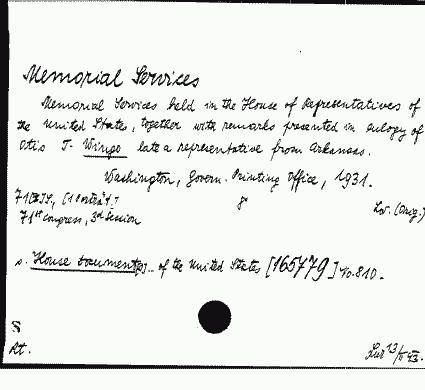 Memorial Services
Memorial Services held in the House of Representatives of
the United States, together with remarks presented in eulogy of
Otis T. Wingo late a representative from Arkansas.
Washington, Govern. Printing Office, 1931.
71 S., [1 Porträt.] 8° Lw. (Orig.)
71st Congress, 3d Session
s. House documents of the United States [165779] No. 810.
S
At. 13/II 43.